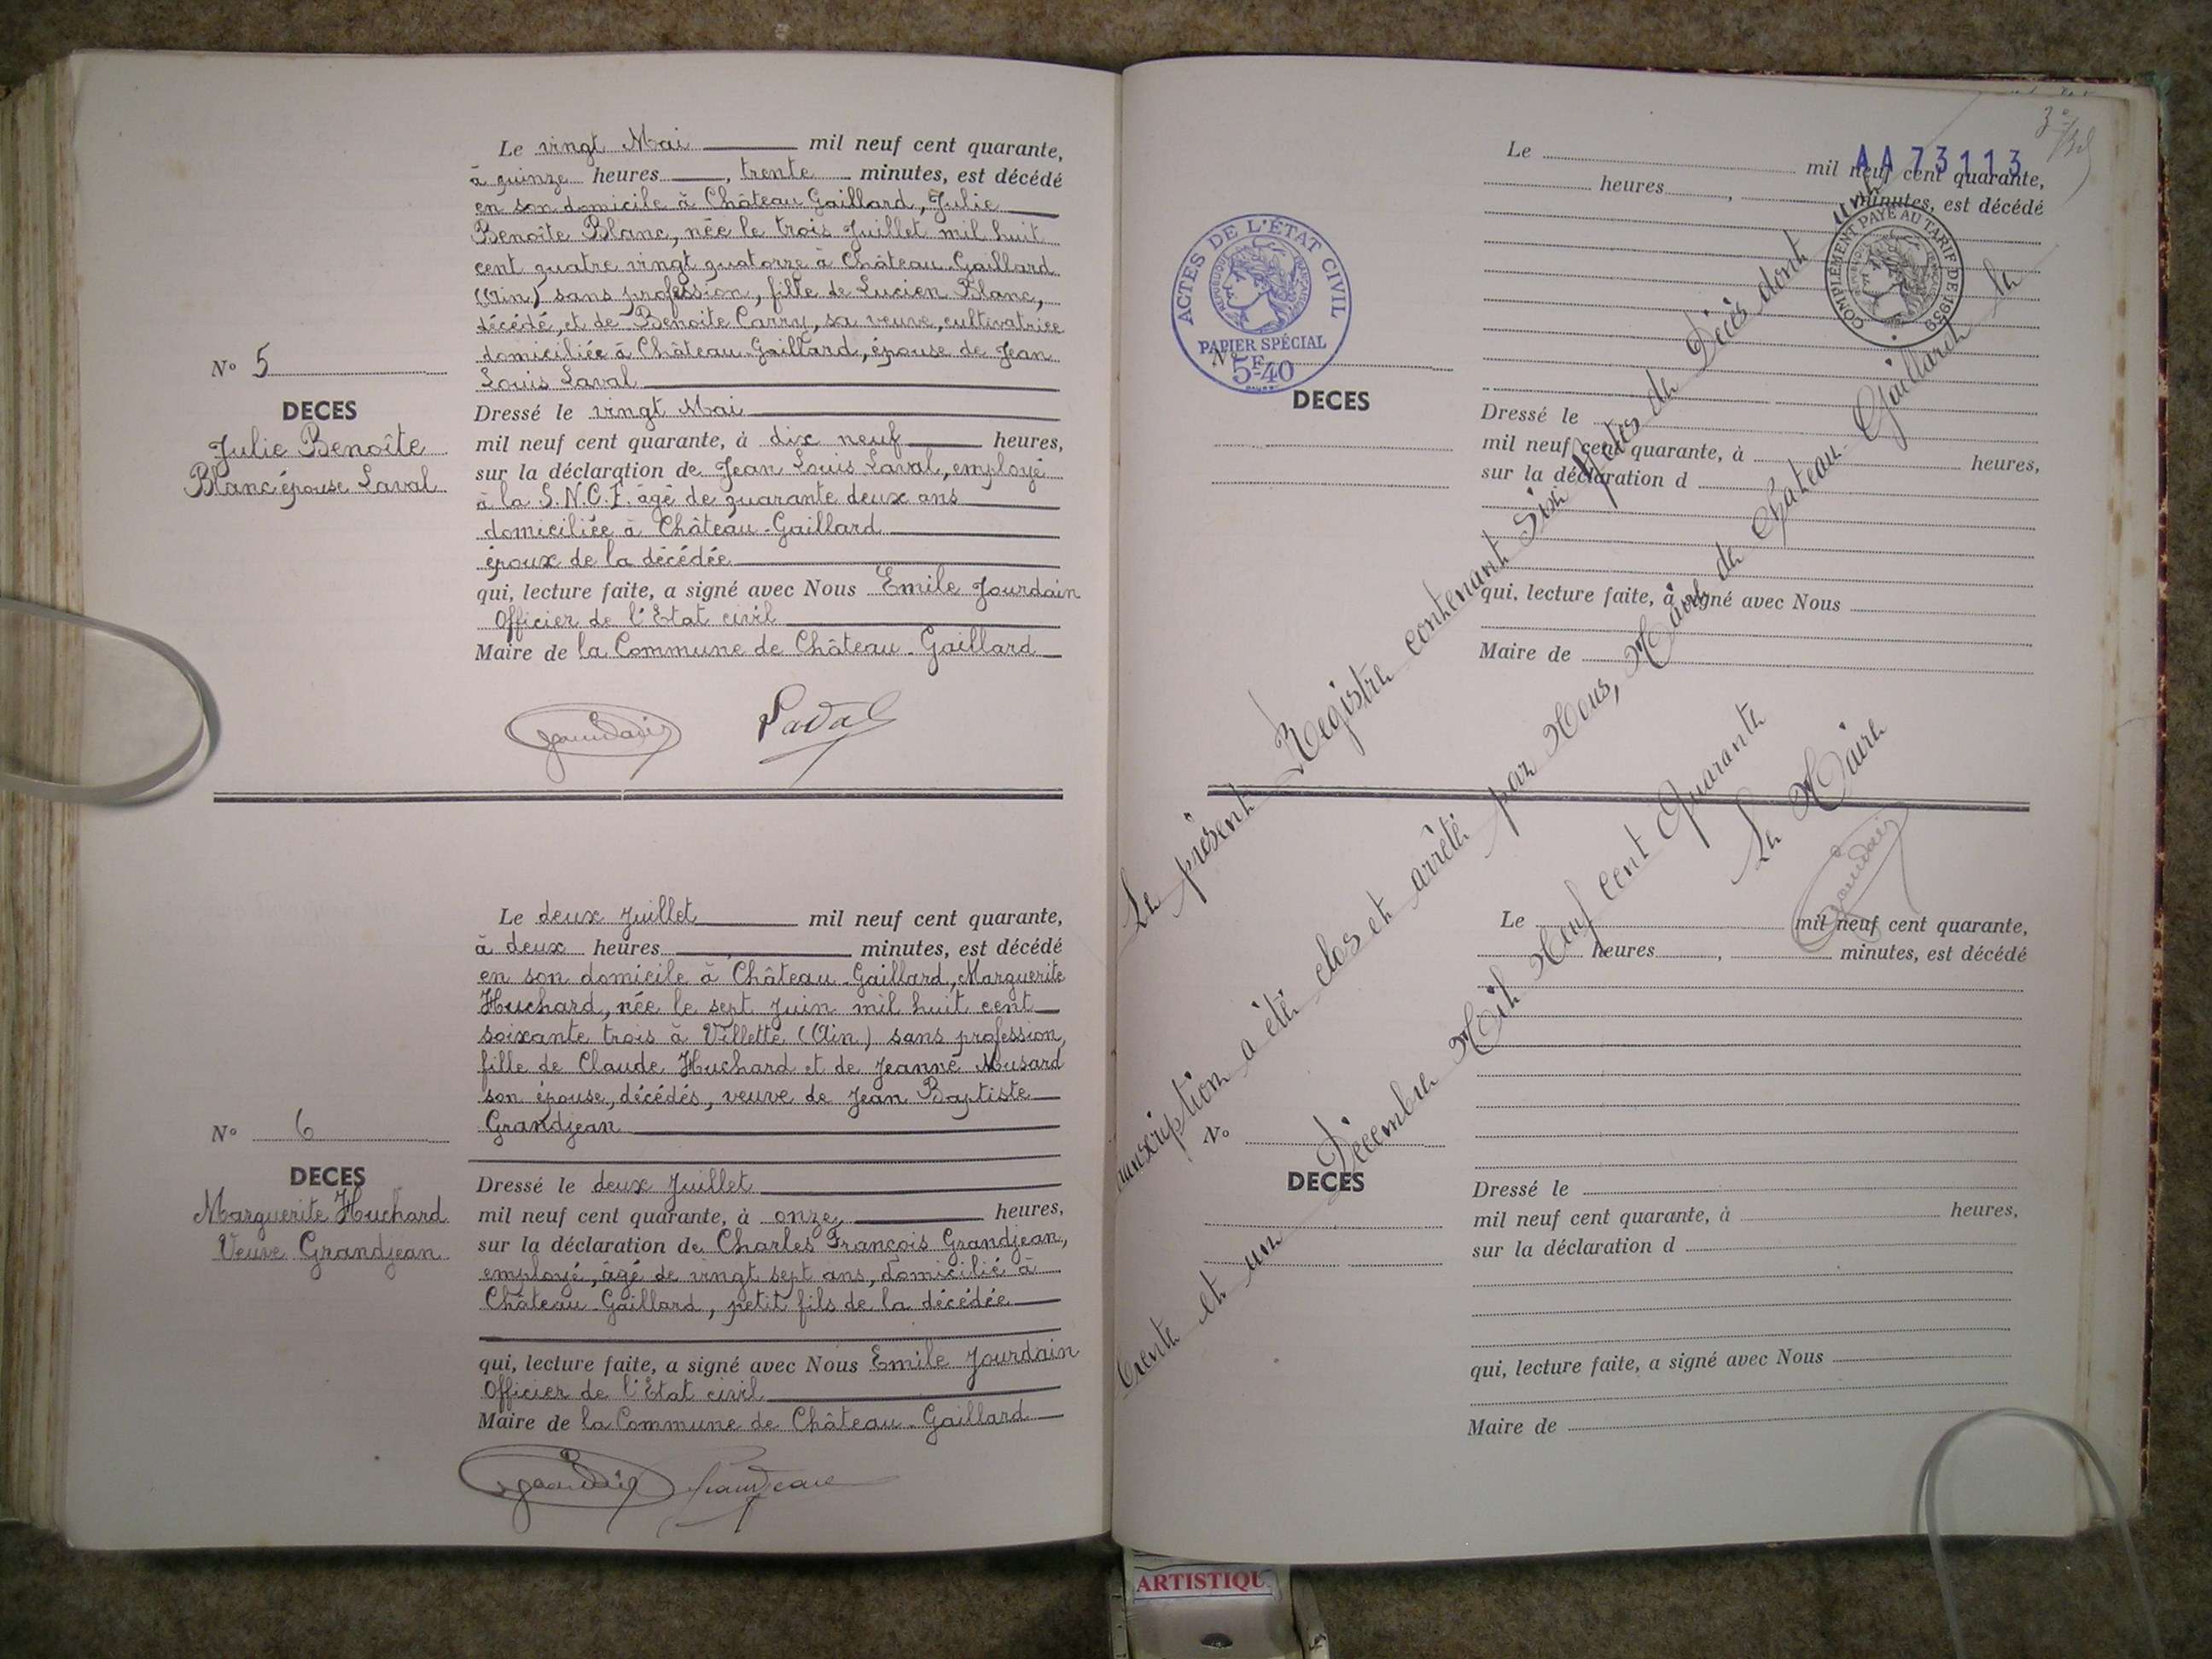 Le vingt Mai mil neuf cent quarante,
à quinze heures, trente minutes, est décédé
en son domicile à Château Gaillard, Julie
Benoîte Blanc, née le trois Juillet mil huit
cent quatre vingt quatorze à Château-Gaillard
(Ain) sans profession, fille de Lucien Blanc,
décédé, et de Benoite Carry, sa veuve, cultivatrice
domiciliée à Château-Gaillard, épouse de Jean
Louis Laval
N° 5
DECES
Julie Benoîte
Blanc épouse Laval
Dressé le vingt Mai
mil neuf cent quarante, à dix neuf heures,
sur la déclaration de Jean Louis Laval, employé
à la S.N.C.F. âgé de quarante deux ans
domiciliée à Château-Gaillard
époux de la décédée
qui, lecture faite, a signé avec Nous Emile Jourdain
Officier de l'Etat civil
Maire de la Commune de Château-Gaillard
Laval
Le deux Juillet mil neuf cent quarante,
à deux heures minutes, est décédé
en son domicile à Château-Gaillard, Marguerite
Huchard, née le sept Juin mil huit cent
soixante trois à Villette (Ain) sans profession,
fille de Claude Huchard et de Jeanne Musard
son épouse, décédés, veuve de Jean Baptiste
Grandjean
N° 6
DECES
Marguerite Huchard
Veuve Grandjean
Dressé le deux Juillet
mil neuf cent quarante, à onze heures,
sur la déclaration de Charles François Grandjean,
employé, âgé de vingt sept ans, domicilié à
Château-Gaillard, petit fils de la décédée
qui, lecture faite, a signé avec Nous Emile Jourdain
Officier de l'Etat civil
Maire de la Commune de Château-Gaillard
AA 73113
Le mil neuf cent quarante,
heures, minutes, est décédé
ACTES DE L'ÉTAT CIVIL
RÉPUBLIQUE FRANÇAISE
PAPIER SPÉCIAL
5F40
COMPLÉMENT PAYÉ AU TARIF DE 1939
N°
DECES
Dressé le
mil neuf cent quarante, à heures,
sur la déclaration d
qui, lecture faite, a signé avec Nous
Maire de
Le présent Registre contenant Six Actes de Décès dont une
transcription a été clos et arrêté par Nous, Maire de Château-Gaillard le
trente et un Décembre Mil Neuf cent Quarante
Le Maire
Le mil neuf cent quarante,
heures, minutes, est décédé
N°
DECES
Dressé le
mil neuf cent quarante, à heures,
sur la déclaration d
qui, lecture faite, a signé avec Nous
Maire de
ARTISTIQU